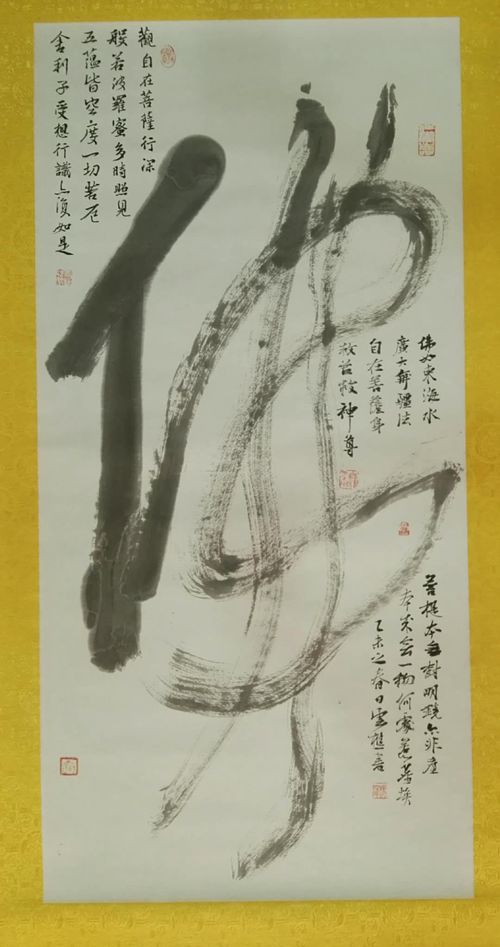 佛
觀自在菩薩行深
般若波羅蜜多時照見
五蘊皆空度一切苦厄
舍利子受想行識亦復如是
佛如東海水
廣大法
自在菩薩身
救苦救神尊
菩提本無樹明鏡亦非臺
本來無一物何處惹塵埃
乙未之春日雲